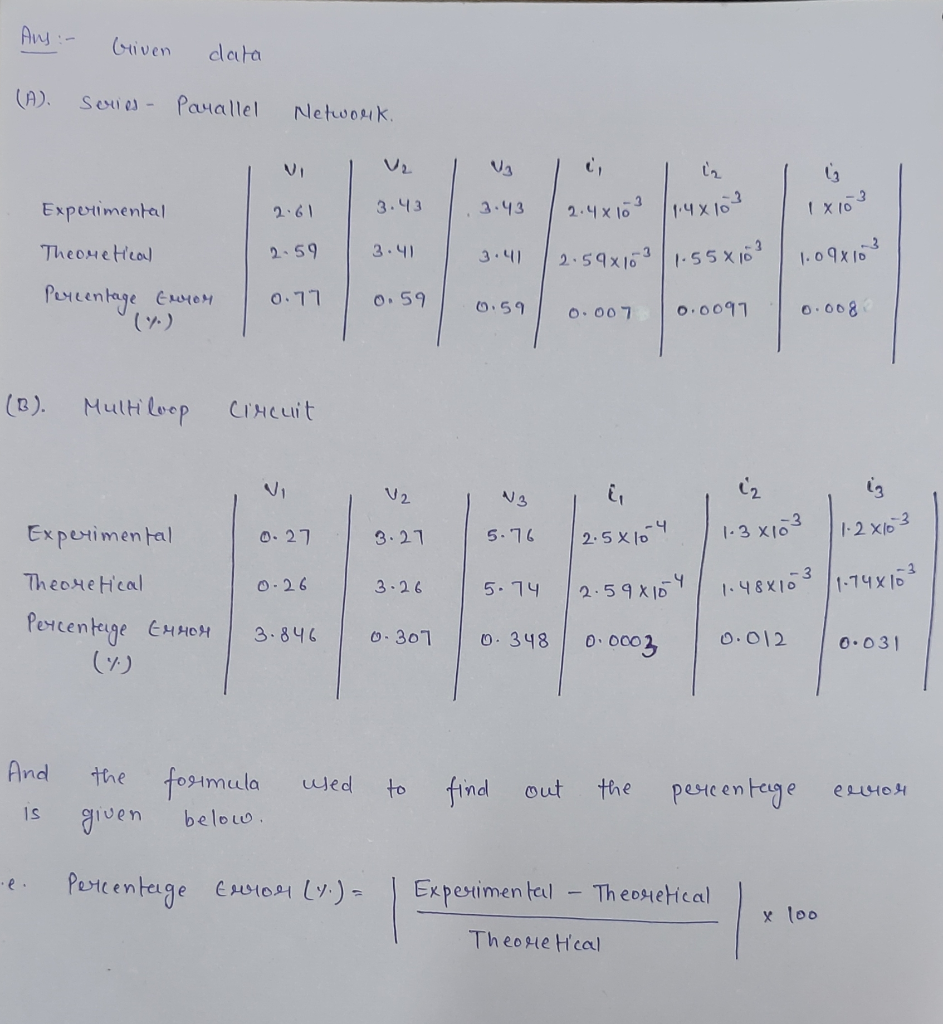 Ans :- Given data
(A). Series - Parallel Network.
V1 V2 V3 i1 i2 i3
Experimental 2.61 3.43 3.43 2.4 x 10^-3 1.4 x 10^-3 1 x 10^-3
Theoretical 2.59 3.41 3.41 2.59 x 10^-3 1.55 x 10^-3 1.09 x 10^-3
Percentage Error 0.77 0.59 0.59 0.007 0.0097 0.008
(%)
(B). Multiloop Circuit
V1 V2 V3 i1 i2 i3
Experimental 0.27 3.27 5.76 2.5 x 10^-4 1.3 x 10^-3 1.2 x 10^-3
Theoretical 0.26 3.26 5.74 2.59 x 10^-4 1.48 x 10^-3 1.74 x 10^-3
Percentage Error 3.846 0.307 0.348 0.0003 0.012 0.031
(%)
And the formula used to find out the percentage error
is given below.
.e. Percentage Error (%) = | Experimental - Theoretical | x 100
Theoretical